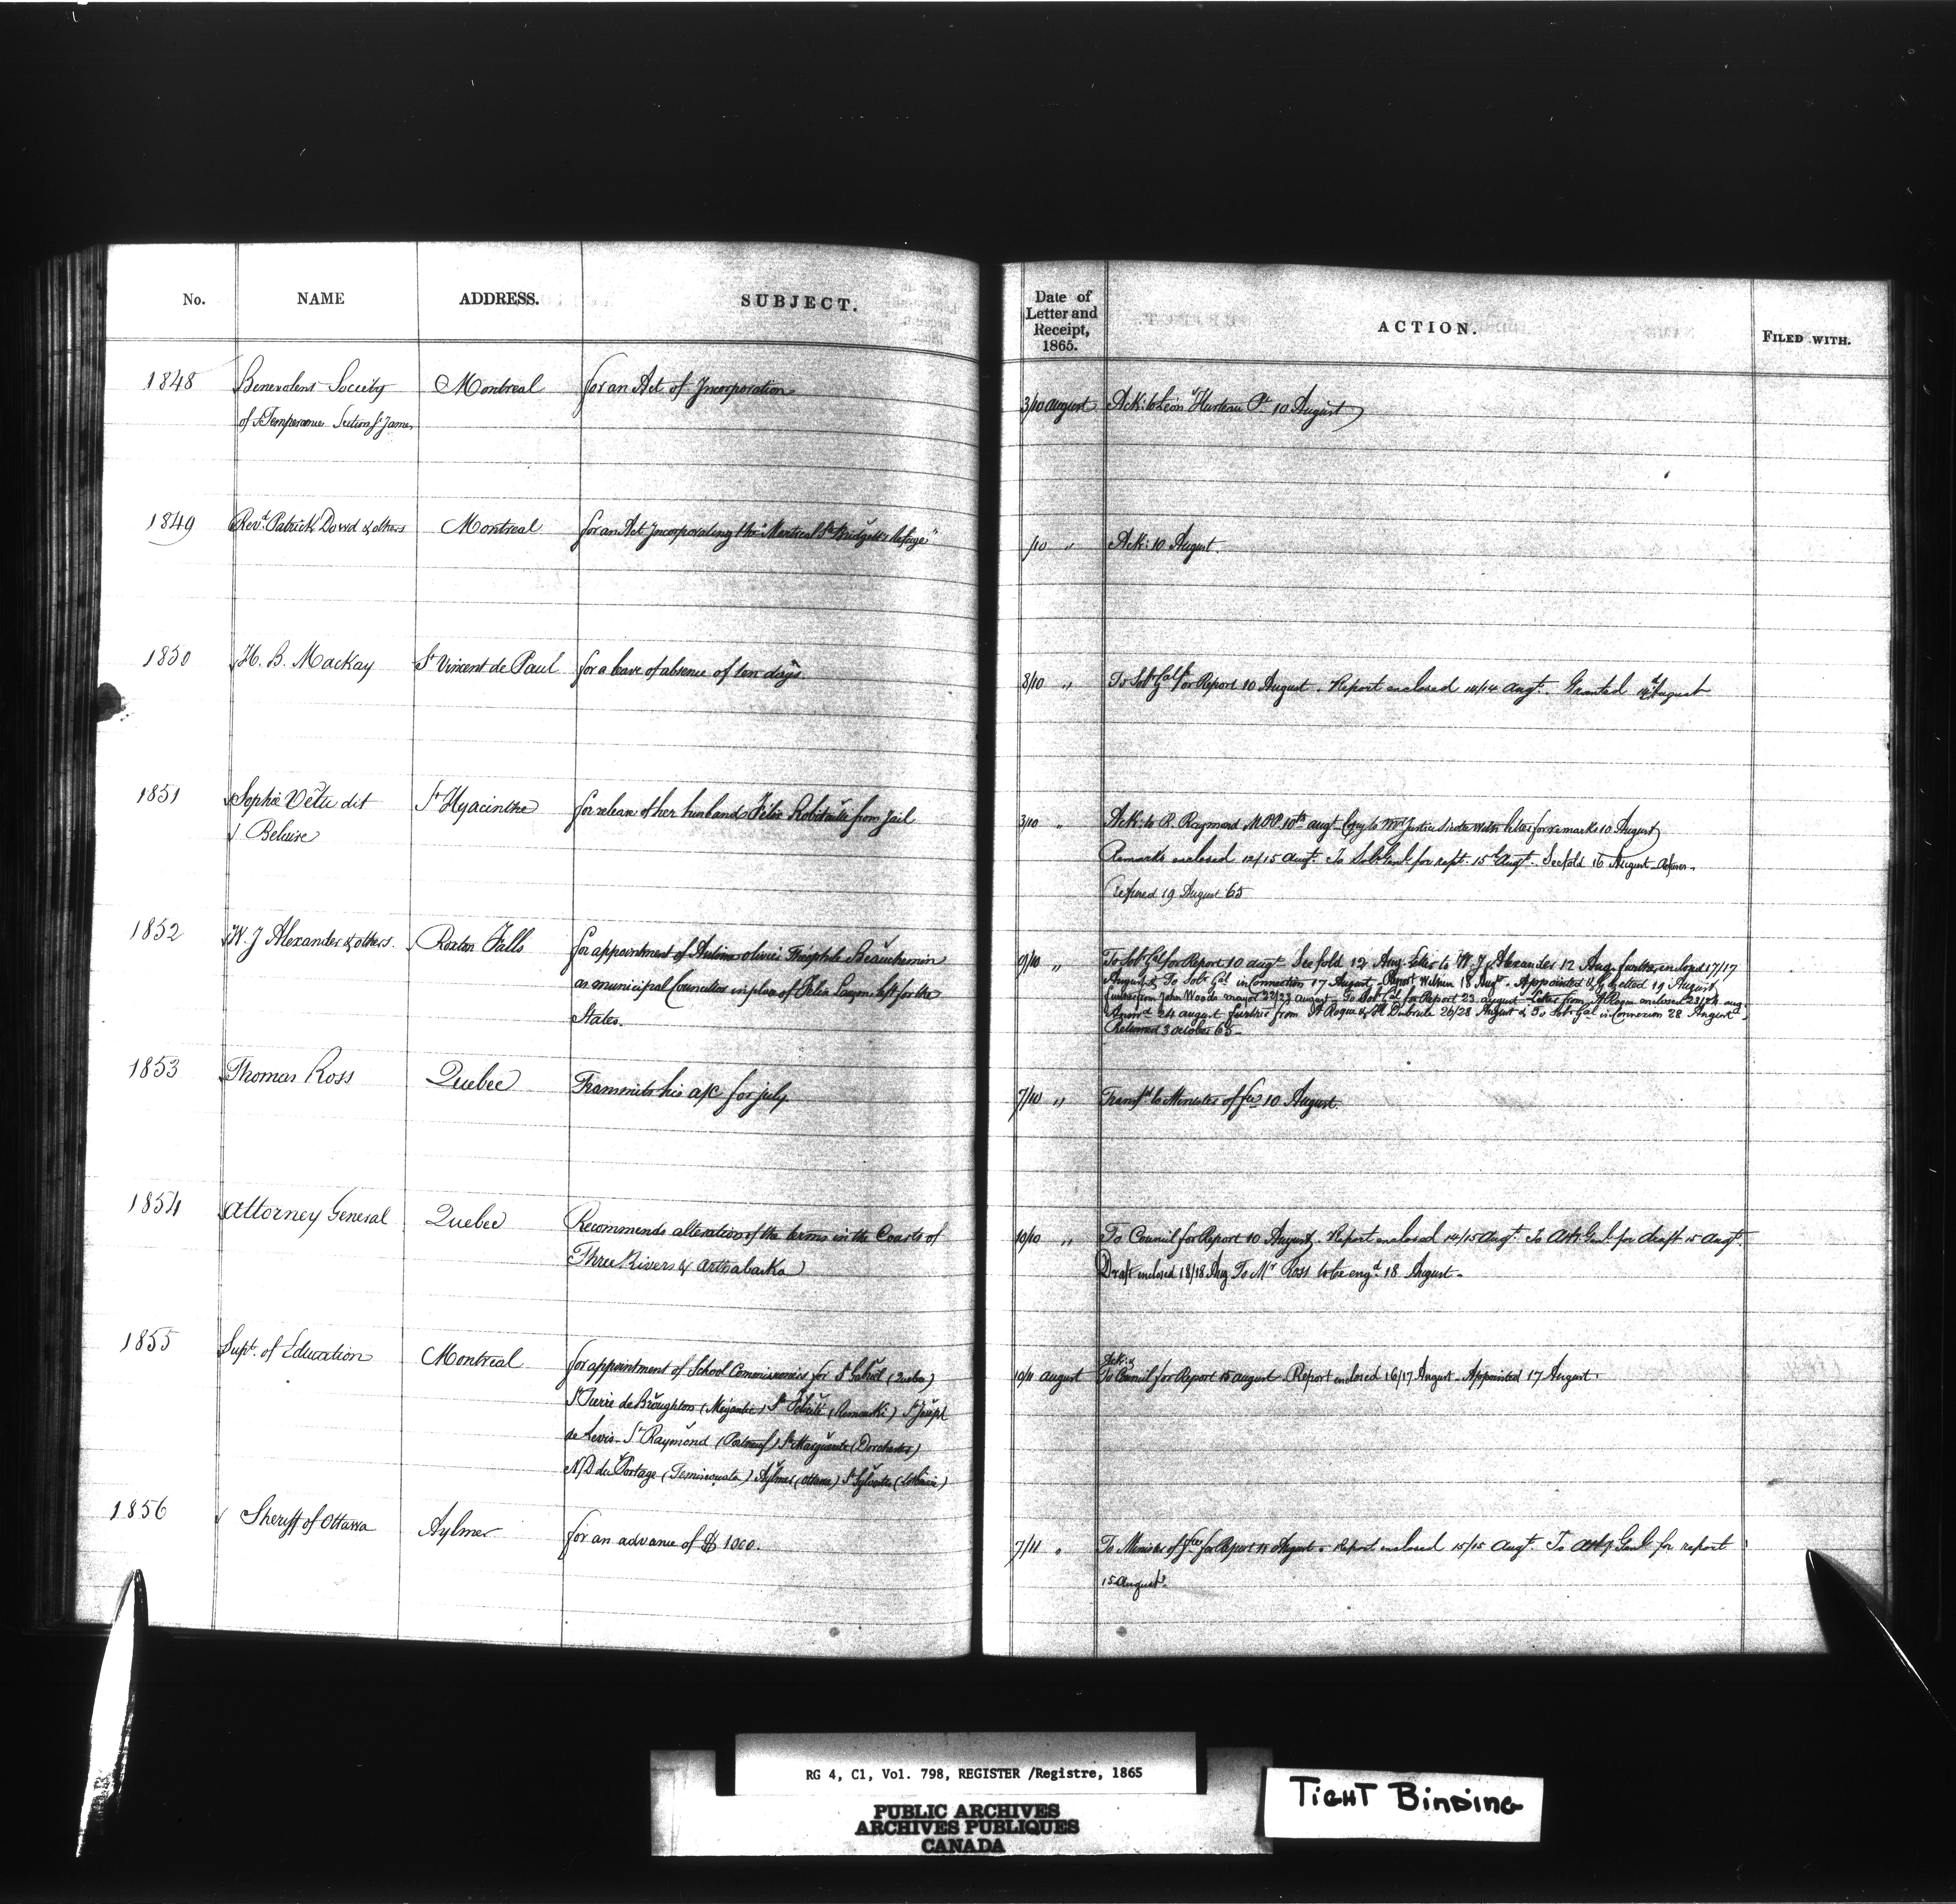 No. NAME ADDRESS. SUBJECT. Date of Letter and Receipt, 1865. ACTION. FILED WITH.
1848 Benevolent Society Montreal for an Act of Incorporation 3/10 August Ack: to Léon Hurteau Pt 10 August
of Temperance Section St James
1849 Revd. Patrick Dowd & others Montreal for an Act Incorporating the "Montreal St Bridget's Refuge" /10 " Ack: 10 August.
1850 H. B. Mackay St Vincent de Paul for a leave of absence of ten days 8/10 " To Solr Gal for Report 10 August. Report enclosed 14/14 augt. Granted 14 August
1851 Sophie Vêtu dit St Hyacinthe for release of her husband Félix Robitaille from Jail 3/10 " Ack: to R. Raymond M.P.P. 10th augt Copy to Mr Justice Sicotte with letter for remarks 10 August
Beluire Remarks enclosed 12/15 augt. To Solr Genl for rept. 15 Augt. See fold 16 August
Refused 19 August 65
1852 W. J Alexander & others. Roxton Falls for appointment of Antoine Olivier Théophile Beauchemin 9/10 " To Solr Gal for Report 10 augt See fold 12 Aug. Letter to W. J Alexander 12 Aug. further enclosed 17/17
as municipal Councillor in place of Félix Lagon left for the August & To Solr Gal in Connection 17 August - Report 18 Augt. - Appointed & Gazetted 19 August
States. further from John Woods mayor 22/23 august - To Solr Gal for Report 23 august - Letter from A Roque enclosed 23/24 aug.
24 august further from A Roque & H Dubrule 26/28 August & To Solr Gal in Connexion 28 August
Returned 3 october 65 -
1853 Thomas Ross Quebec Transmits his a/c for july 7/10 " Transfd to Minister of fce 10 August.
1854 Attorney General Quebec Recommends alteration of the terms in the Courts of 10/10 " To Council for Report 10 August. Report enclosed 14/15 Augt. To Atty Genl for draft 15 augt.
Three Rivers & Arthabaska Draft enclosed 18/18 Aug To Mr Ross to be engd. 18 August -
1855 Supt. of Education Montreal for appointment of School Commissioners for St Gabriel (Quebec) 10/11 august Ack: & To Council for Report 15 august. Report enclosed 16/17 August - Appointed 17 August.
St Pierre de Broughton (Megantic) Ste Félicité (Rimouski) St Joseph
de Levis - St Raymond (Portneuf) Ste Marguerite (Dorchester)
N.D du Portage (Temiscouata) Aylmer (Ottawa) St Sylvestre (Lotbinière)
1856 Sheriff of Ottawa Aylmer for an advance of $ 1000. 7/11 " To Minister of fce for Report 11 August. Report enclosed 15/15 augt. To Atty Genl for report
15 August.
RG 4, C1, Vol. 798, REGISTER /Registre, 1865
PUBLIC ARCHIVES
ARCHIVES PUBLIQUES
CANADA
TIGHT BINDING